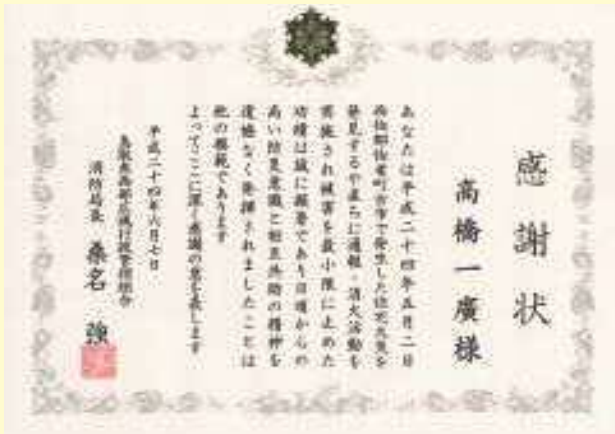 感謝状
高橋一廣様
あなたは平成二十四年五月二日
西伯郡伯耆町吉市で発生した住宅火災を
発見するや直ちに通報・消火活動を
実施され被害を最小限に止めた
功績は誠に顕著であり日頃からの
高い防災意識と相互共助の精神を
遺憾なく発揮されましたことは
他の模範であります
よってここに深く感謝の意を表します
平成二十四年六月七日
鳥取県西部広域行政管理組合
消防局長 桑名 強